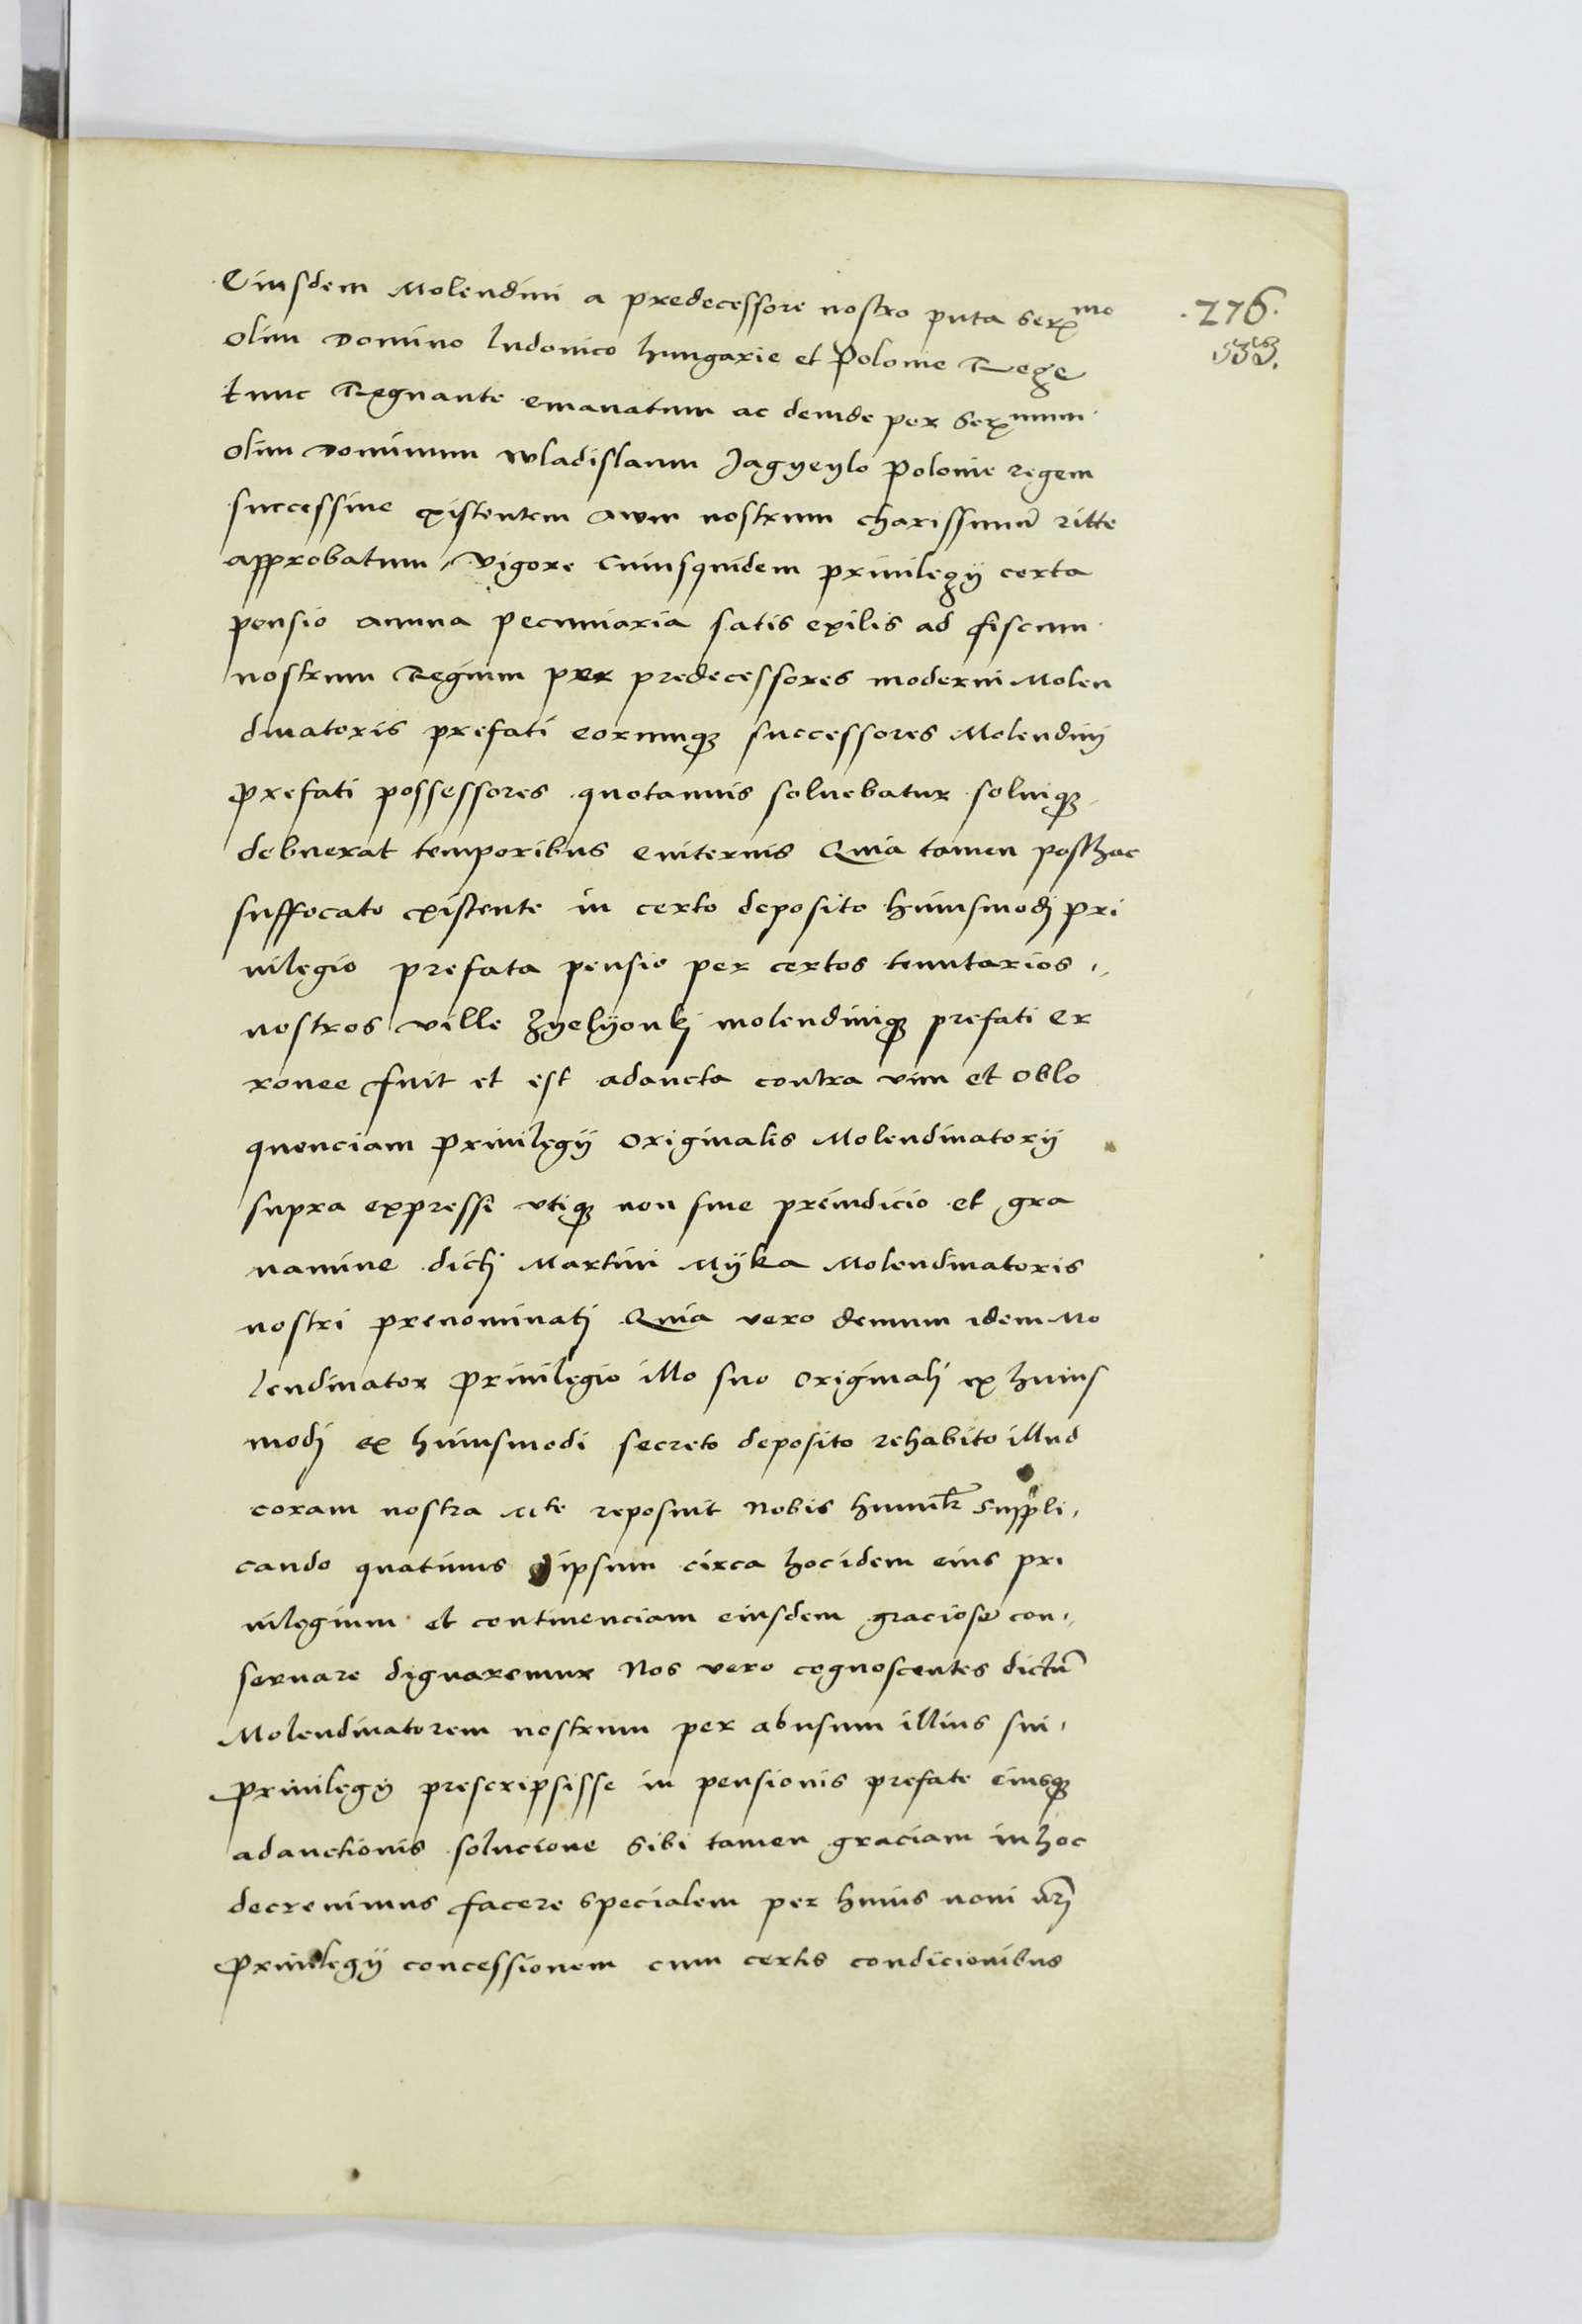 Eiusdem Molendini a predecessore nostro puta Serᵐᵒ
·276·
olim Domino Ludouico Hungarie et Polonie Rege
tunc Regnante emanatum ac deinde per Serᵐᵘᵐ
olim Dominum Wladislaum Jagyeylo Polonie regem
successiue existentem auum nostrum charissimū ritte
approbatum, Vigore Cuiusquidem priuilegij certa
pensio annua pecuniaria satis exilis ad fiscum
nostrum Regium per predecessores moderni Molen
dinatoris prefati eorumqꝫ successores Molendinj
prefati possessores quotannis soluebatur soluiqꝫ
debuerat temporibus euiternis Quia tamen posthac
suffocato existente in certo deposito huiusmodj pri
uilegio prefata pensio per certos tenutarios
nostros ville Zyelyonkj molendiniqꝫ prefati er
ronee fuit et est adaucta contra vim et oblo
quenciam priuilegij originalis Molendinatorij
supra expressi vtiqꝫ non sine preiudicio et gra
uamine dictj Martini Myka Molendinatoris
nostri prenominatj Quia vero demum idem Mo
lendinator priuilegio illo suo originalj ex huius
modj ex huiusmodi secreto deposito rehabito illud
coram nostra Mte reposuit Nobis humilr suppli
cando quatinus ipsum circa hocidem eius pri
uilegium et continenciam eiusdem graciose con
seruare dignaremur Nos vero cognoscentes dictū
Molendinatorem nostrum per abusum illius sui
priuilegij prescripsisse in pensionis prefate eiusqꝫ
adauctionis solucione sibi tamen graciam in hoc
decreuimus facere specialem per huius noui nrj
priuilegij concessionem cum certis condicionibus